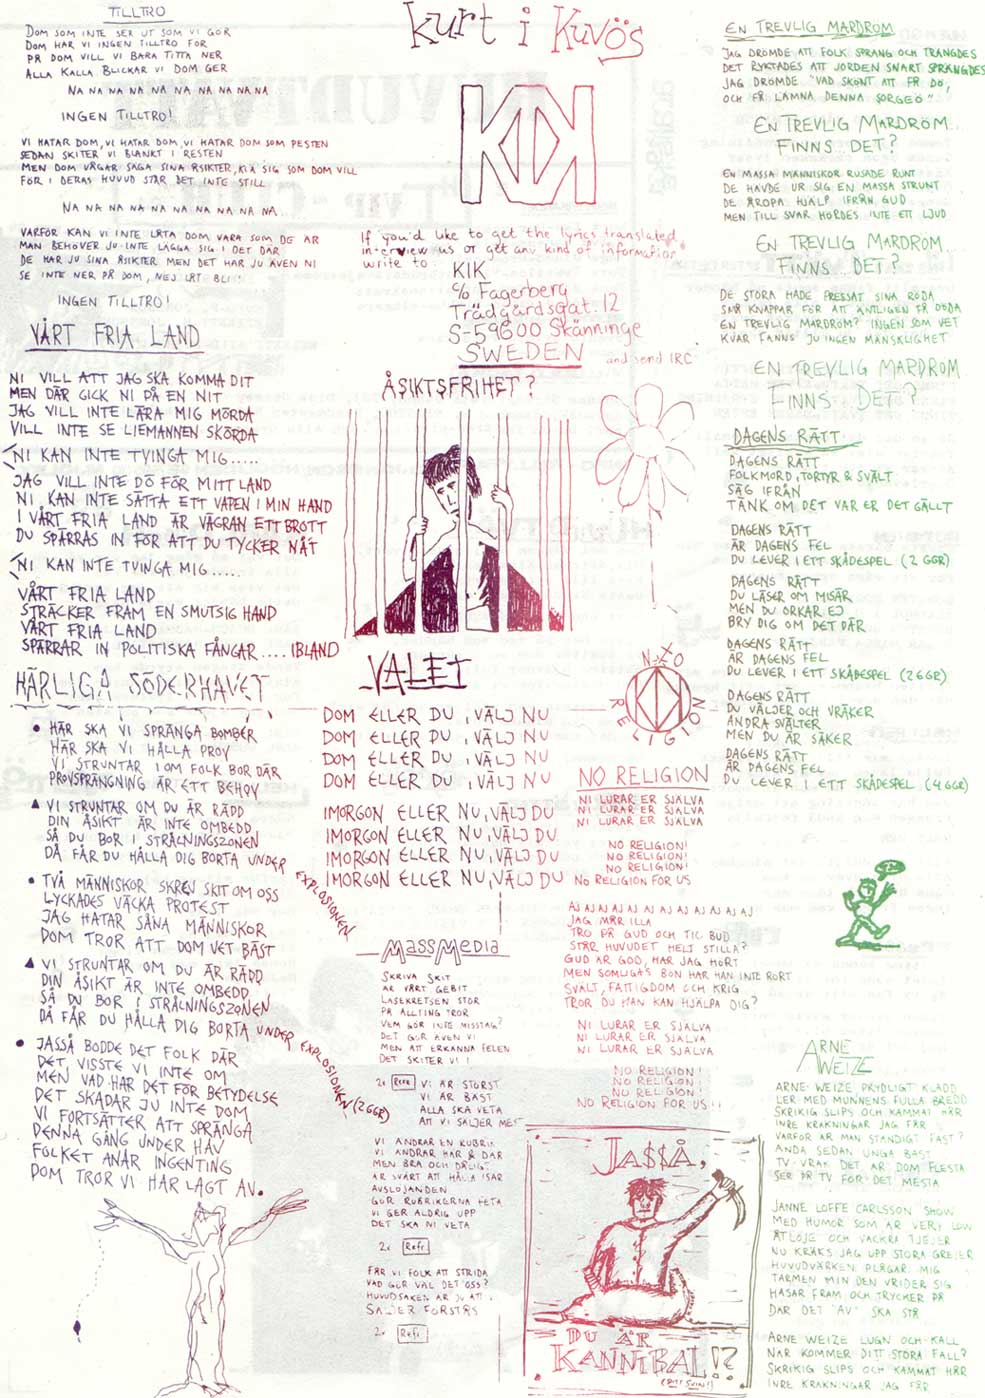 TILLTRO
DOM SOM INTE SER UT SOM VI GÖR
DOM HAR VI INGEN TILLTRO FÖR
PÅ DOM VILL VI BARA TITTA NER
ALLA KALLA BLICKAR VI DOM GER
NA NA NA NA NA NA NA NA NA NA...
INGEN TILLTRO!
VI HATAR DOM, VI HATAR DOM, VI HATAR DOM SOM PESTEN
SEDAN SKITER VI BLANKT I RESTEN
MEN DOM VÅGAR SÄGA SINA ÅSIKTER, KLÄ SIG SOM DOM VILL
FÖR I DERAS HUVUD STÅR DET INTE STILL
NA NA NA NA NA NA NA NA NA NA...
VARFÖR KAN VI INTE LÅTA DOM VARA SOM DE ÄR
MAN BEHÖVER JU INTE LÄGGA SIG I DET DÄR
DE HAR JU SINA ÅSIKTER MEN DET HAR JU ÄVEN NI
SE INTE NER PÅ DOM, NEJ LÅT BLI!
INGEN TILLTRO!
VÅRT FRIA LAND
NI VILL ATT JAG SKA KOMMA DIT
MEN DÄR GICK NI PÅ EN NIT
JAG VILL INTE LÄRA MIG MÖRDA
VILL INTE SE LIEMANNEN SKÖRDA
NI KAN INTE TVINGA MIG.....
JAG VILL INTE DÖ FÖR MITT LAND
NI KAN INTE SÄTTA ETT VAPEN I MIN HAND
I VÅRT FRIA LAND ÄR VÄGRAN ETT BROTT
DU SPÄRRAS IN FÖR ATT DU TYCKER NÅT
NI KAN INTE TVINGA MIG.....
VÅRT FRIA LAND
STRÄCKER FRAM EN SMUTSIG HAND
VÅRT FRIA LAND
SPÄRRAR IN POLITISKA FÅNGAR.... IBLAND
HÄRLIGA SÖDERHAVET
• HÄR SKA VI SPRÄNGA BOMBER
HÄR SKA VI HÅLLA PROV
VI STRUNTAR I OM FOLK BOR DÄR
PROVSPRÄNGNING ÄR ETT BEHOV
▲ VI STRUNTAR OM DU ÄR RÄDD
DIN ÅSIKT ÄR INTE OMBEDD
SÅ DU BOR I STRÅLNINGSZONEN
DÅ FÅR DU HÅLLA DIG BORTA UNDER EXPLOSIONEN
• TVÅ MÄNNISKOR SKREV SKIT OM OSS
LYCKADES VÄCKA PROTEST
JAG HATAR SÅNA MÄNNISKOR
DOM TROR ATT DOM VET BÄST
▲ VI STRUNTAR OM DU ÄR RÄDD
DIN ÅSIKT ÄR INTE OMBEDD
SÅ DU BOR I STRÅLNINGSZONEN
DÅ FÅR DU HÅLLA DIG BORTA UNDER EXPLOSIONEN (2 GGR)
• JASSÅ BODDE DET FOLK DÄR
DET VISSTE VI INTE OM
MEN VAD HAR DET FÖR BETYDELSE
DET SKADAR JU INTE DOM
VI FORTSÄTTER ATT SPRÄNGA
DENNA GÅNG UNDER HAV
FOLKET ANAR INGENTING
DOM TROR VI HAR LAGT AV.
kurt i Kuvös
KIK
If you'd like to get the lyrics translated,
interview us or get any kind of information
write to:
KIK
c/o Fagerberg
Trädgårdsgat. 12
S-59600 Skänninge
SWEDEN and send IRC
ÅSIKTSFRIHET?
VALET
DOM ELLER DU, VÄLJ NU
DOM ELLER DU, VÄLJ NU
DOM ELLER DU, VÄLJ NU
DOM ELLER DU, VÄLJ NU
IMORGON ELLER NU, VÄLJ DU
IMORGON ELLER NU, VÄLJ DU
IMORGON ELLER NU, VÄLJ DU
IMORGON ELLER NU, VÄLJ DU
MASSMEDIA
SKRIVA SKIT
ÄR VÅRT GEBIT
LÄSEKRETSEN STOR
PÅ ALLTING TROR
VEM GÖR INTE MISSTAG?
DET GÖR ÄVEN VI
MEN ATT ERKÄNNA FELEN
DET SKITER VI I
2x Refr. VI ÄR STÖRST
VI ÄR BÄST
ALLA SKA VETA
ATT VI SÄLJER MEST
VI ÄNDRAR EN RUBRIK
VI ÄNDRAR HÄR & DÄR
MEN BRA OCH DÅLIGT
ÄR SVÅRT ATT HÅLLA ISÄR
AVSLÖJANDEN
GÖR RUBRIKERNA FETA
VI GER ALDRIG UPP
DET SKA NI VETA
2x Refr.
FÅR VI FOLK ATT STRIDA
VAD GÖR VÄL DET OSS?
HUVUDSAKEN ÄR JU ATT VI
SÄLJER FÖRSTÅS
2x Refr.
NO RELIGION
NO RELIGION
NI LURAR ER SJÄLVA
NI LURAR ER SJÄLVA
NI LURAR ER SJÄLVA
NO RELIGION!
NO RELIGION!
NO RELIGION!
NO RELIGION FOR US
AJ AJ AJ AJ AJ AJ AJ AJ AJ AJ AJ
JAG MÅR ILLA
TRO PÅ GUD OCH TIO BUD
STÅR HUVUDET HELT STILLA?
GUD ÄR GOD, HAR JAG HÖRT
MEN SOMLIGAS BÖN HAR HAN INTE RÖRT
SVÄLT, FATTIGDOM OCH KRIG
TROR DU HAN KAN HJÄLPA DIG?
NI LURAR ER SJÄLVA
NI LURAR ER SJÄLVA
NI LURAR ER SJÄLVA
NO RELIGION!
NO RELIGION!
NO RELIGION!
NO RELIGION FOR US!!
JA$$Å,
DU ÄR
KANNIBAL!?
EN TREVLIG MARDRÖM
JAG DRÖMDE ATT FOLK SPRANG OCH TRÄNGDES
DET RYKTADES ATT JORDEN SNART SPRÄNGDES
JAG DRÖMDE "VAD SKÖNT ATT FÅ DÖ,
OCH FÅ LÄMNA DENNA SORGEÖ"
EN TREVLIG MARDRÖM...
FINNS DET?
EN MASSA MÄNNISKOR RUSADE RUNT
DE HÄVDE UR SIG EN MASSA STRUNT
DE ROPA HJÄLP IFRÅN GUD
MEN TILL SVAR HÖRDES INTE ETT LJUD
EN TREVLIG MARDRÖM...
FINNS DET?
DE STORA HADE PRESSAT SINA RÖDA
SMÅ KNAPPAR FÖR ATT ÄNTLIGEN FÅ DÖDA
EN TREVLIG MARDRÖM? INGEN SOM VET
KVAR FANNS JU INGEN MÄNSKLIGHET
EN TREVLIG MARDRÖM
FINNS DET?
DAGENS RÄTT
DAGENS RÄTT
FOLKMORD, TORTYR & SVÄLT
SÄG IFRÅN
TÄNK OM DET VAR ER DET GÄLLT
DAGENS RÄTT
ÄR DAGENS FEL
DU LEVER I ETT SKÅDESPEL (2 GGR)
DAGENS RÄTT
DU LÄSER OM MISÄR
MEN DU ORKAR EJ
BRY DIG OM DET DÄR
DAGENS RÄTT
ÄR DAGENS FEL
DU LEVER I ETT SKÅDESPEL (2 GGR)
DAGENS RÄTT
DU VÄLJER OCH VRÄKER
ANDRA SVÄLTER
MEN DU ÄR SÄKER
DAGENS RÄTT
ÄR DAGENS FEL
DU LEVER I ETT SKÅDESPEL (4 GGR)
ARNE
WEIZE
ARNE WEIZE PRYDLIGT KLÄDD
LER MED MUNNENS FULLA BREDD
SKRIKIG SLIPS OCH KAMMAT HÅR
INRE KRÄKNINGAR JAG FÅR
VARFÖR ÄR MAN STÄNDIGT FAST?
ÄNDÅ SEDAN UNGA BAST
TV VRÅK DET ÄR DOM FLESTA
SER PÅ TV FÖR DET MESTA
JANNE LOFFE CARLSSON SHOW
MED HUMOR SOM ÄR VERY LOW
ÅTLÖJE OCH VACKRA TJEJER
NU KRÄKS JAG UPP STORA GREJER
HUVUDVÄRKEN PLÅGAR MIG
TARMEN MIN DEN VRIDER SIG
HASAR FRAM OCH TRYCKER PÅ
DÄR DET "AV" SKA STÅ
ARNE WEIZE LUGN OCH KALL
NÄR KOMMER DITT STORA FALL?
SKRIKIG SLIPS OCH KAMMAT HÅR
INRE KRÄKNINGAR JAG FÅR